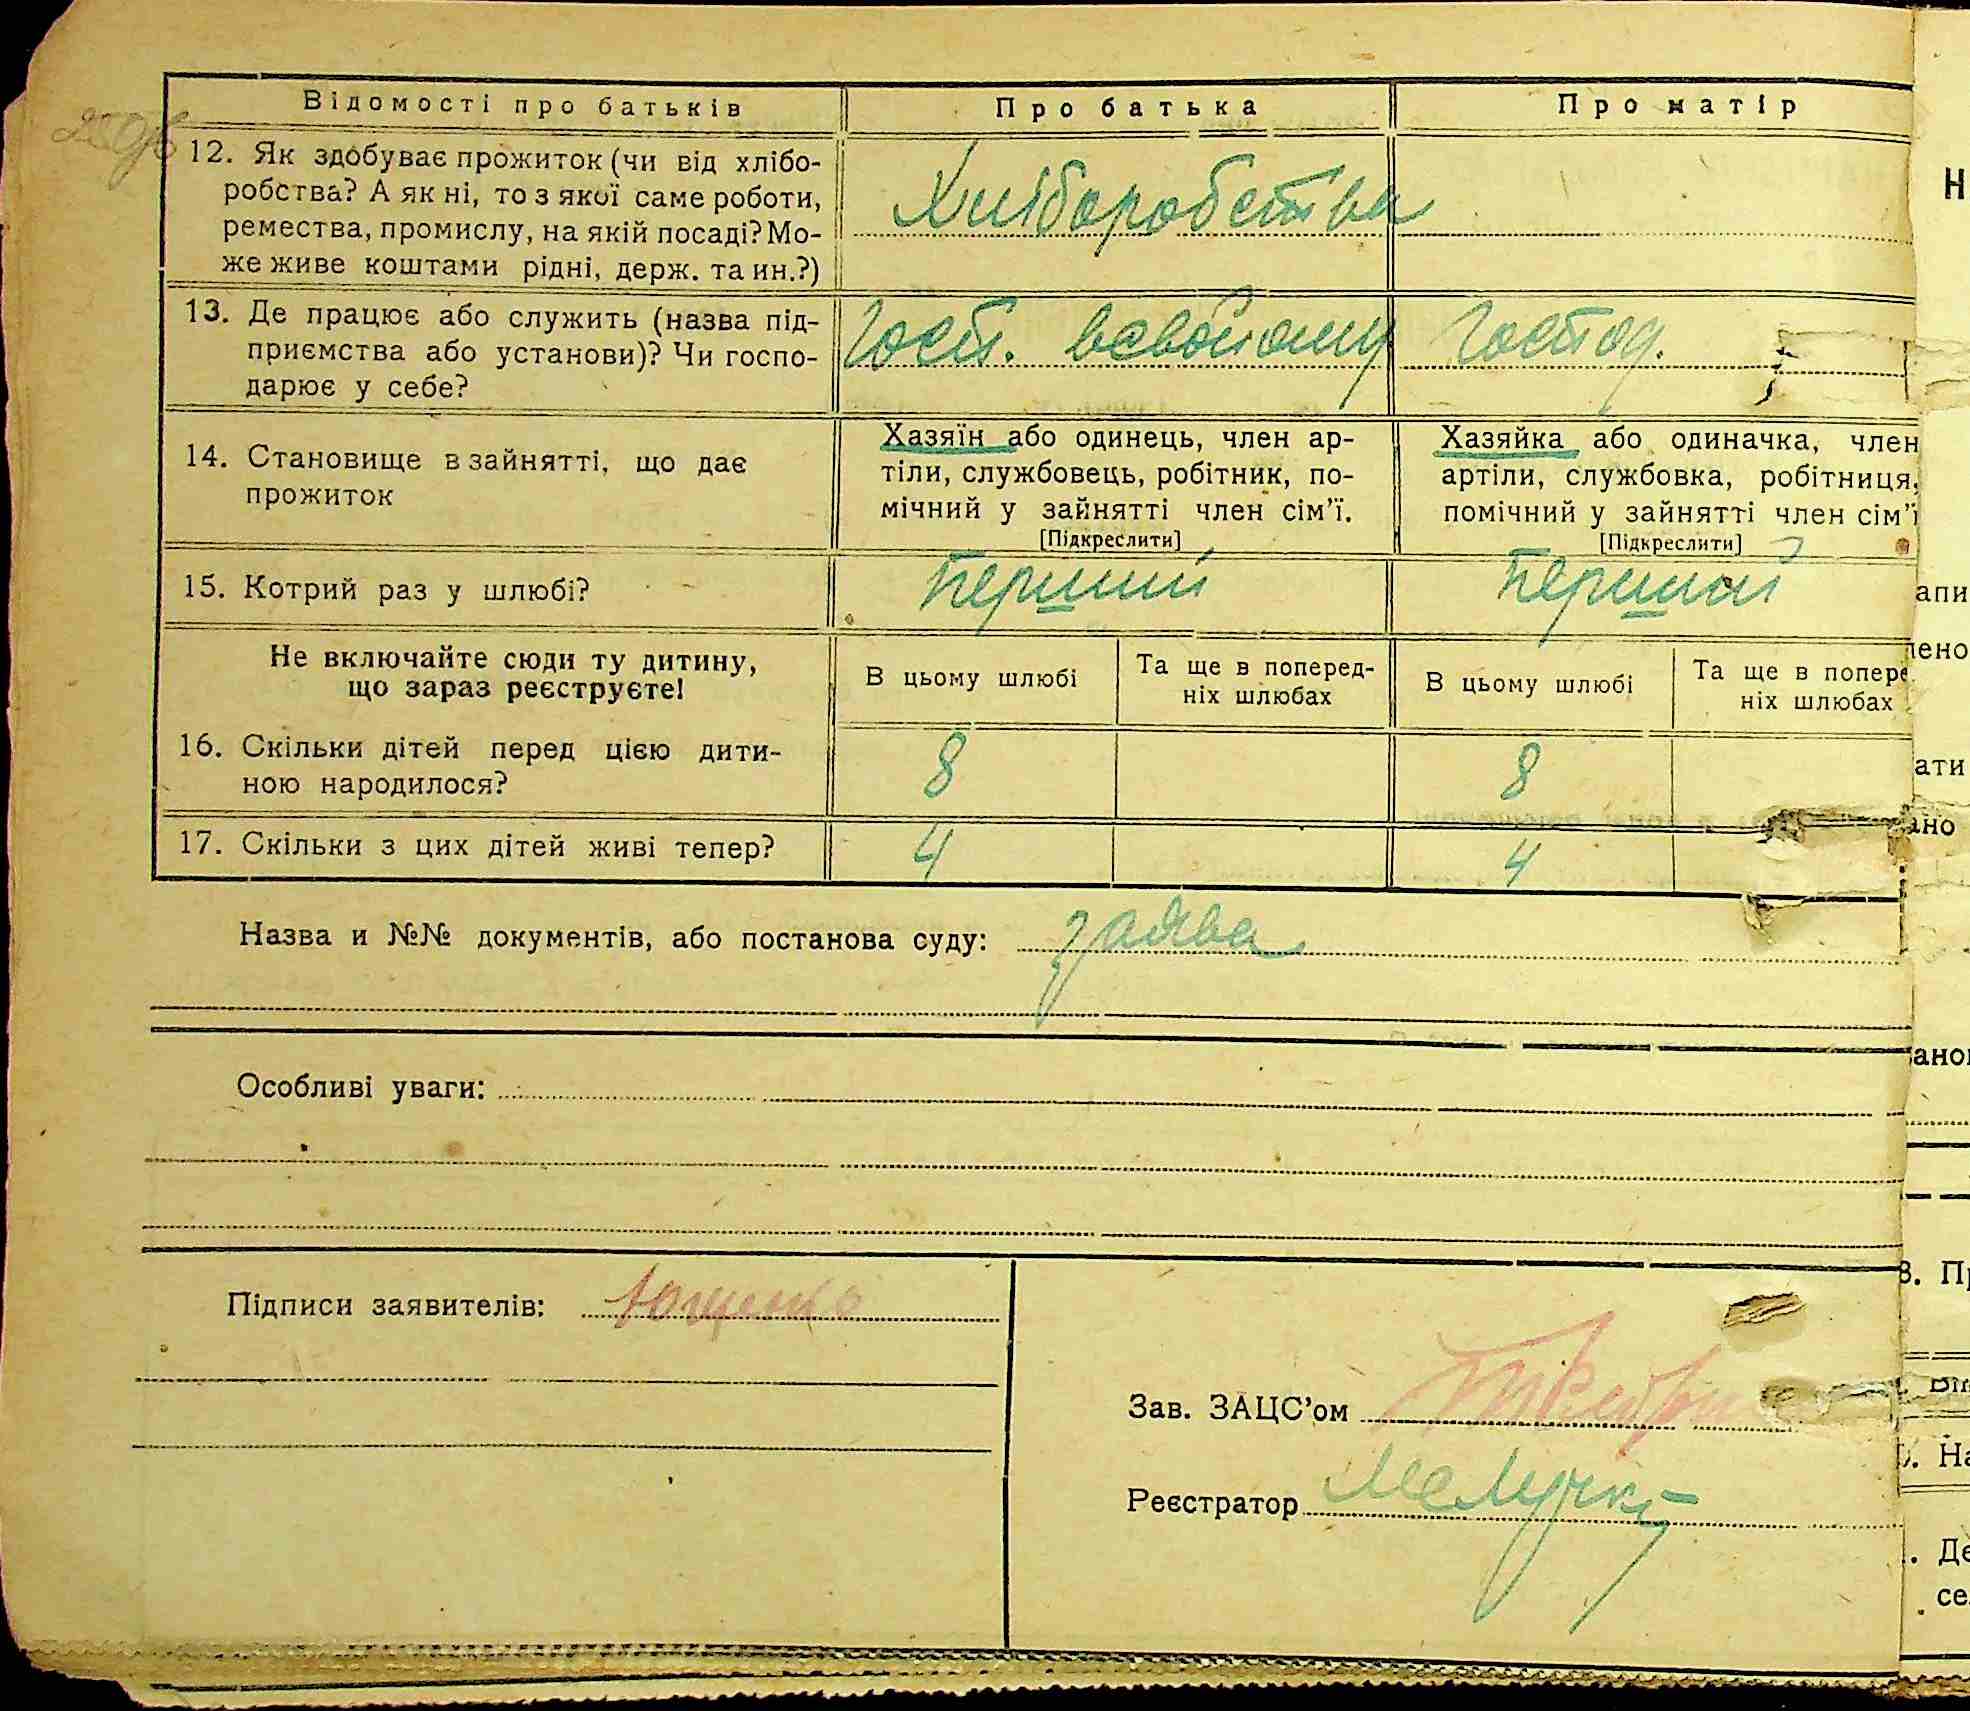 Відомості про батьків
Про батька
Про матір
12. Як здобуває прожиток (чи від хлібо-
робства? А як ні, то з якої саме роботи,
ремества, промислу, на якій посаді? Мо-
же живе коштами рідні, держ. та ин.?)
Хліборобства
13. Де працює або служить (назва під-
приємства або установи)? Чи госпо-
дарює у себе?
Госп. всвойому
Господ.
14. Становище в зайнятті, що дає
прожиток
Хазяїн або одинець, член ар-
тіли, службовець, робітник, по-
мічний у зайнятті член сім'ї.
[Підкреслити]
Хазяйка або одиначка, член
артіли, службовка, робітниця,
помічний у зайнятті член сім'ї
[Підкреслити]
15. Котрий раз у шлюбі?
Перший
Перший
Не включайте сюди ту дитину,
що зараз реєструєте!
В цьому шлюбі
Та ще в поперед-
ніх шлюбах
В цьому шлюбі
Та ще в попере
ніх шлюбах
16. Скільки дітей перед цією дити-
ною народилося?
8
8
17. Скільки з цих дітей живі тепер?
4
4
Назва и №№ документів, або постанова суду: заява
Особливі уваги:
Підписи заявителів: Ющенко
Зав. ЗАЦС'ом
Реєстратор
Н
апи
ати
ано
В. Пр
На
Де
се